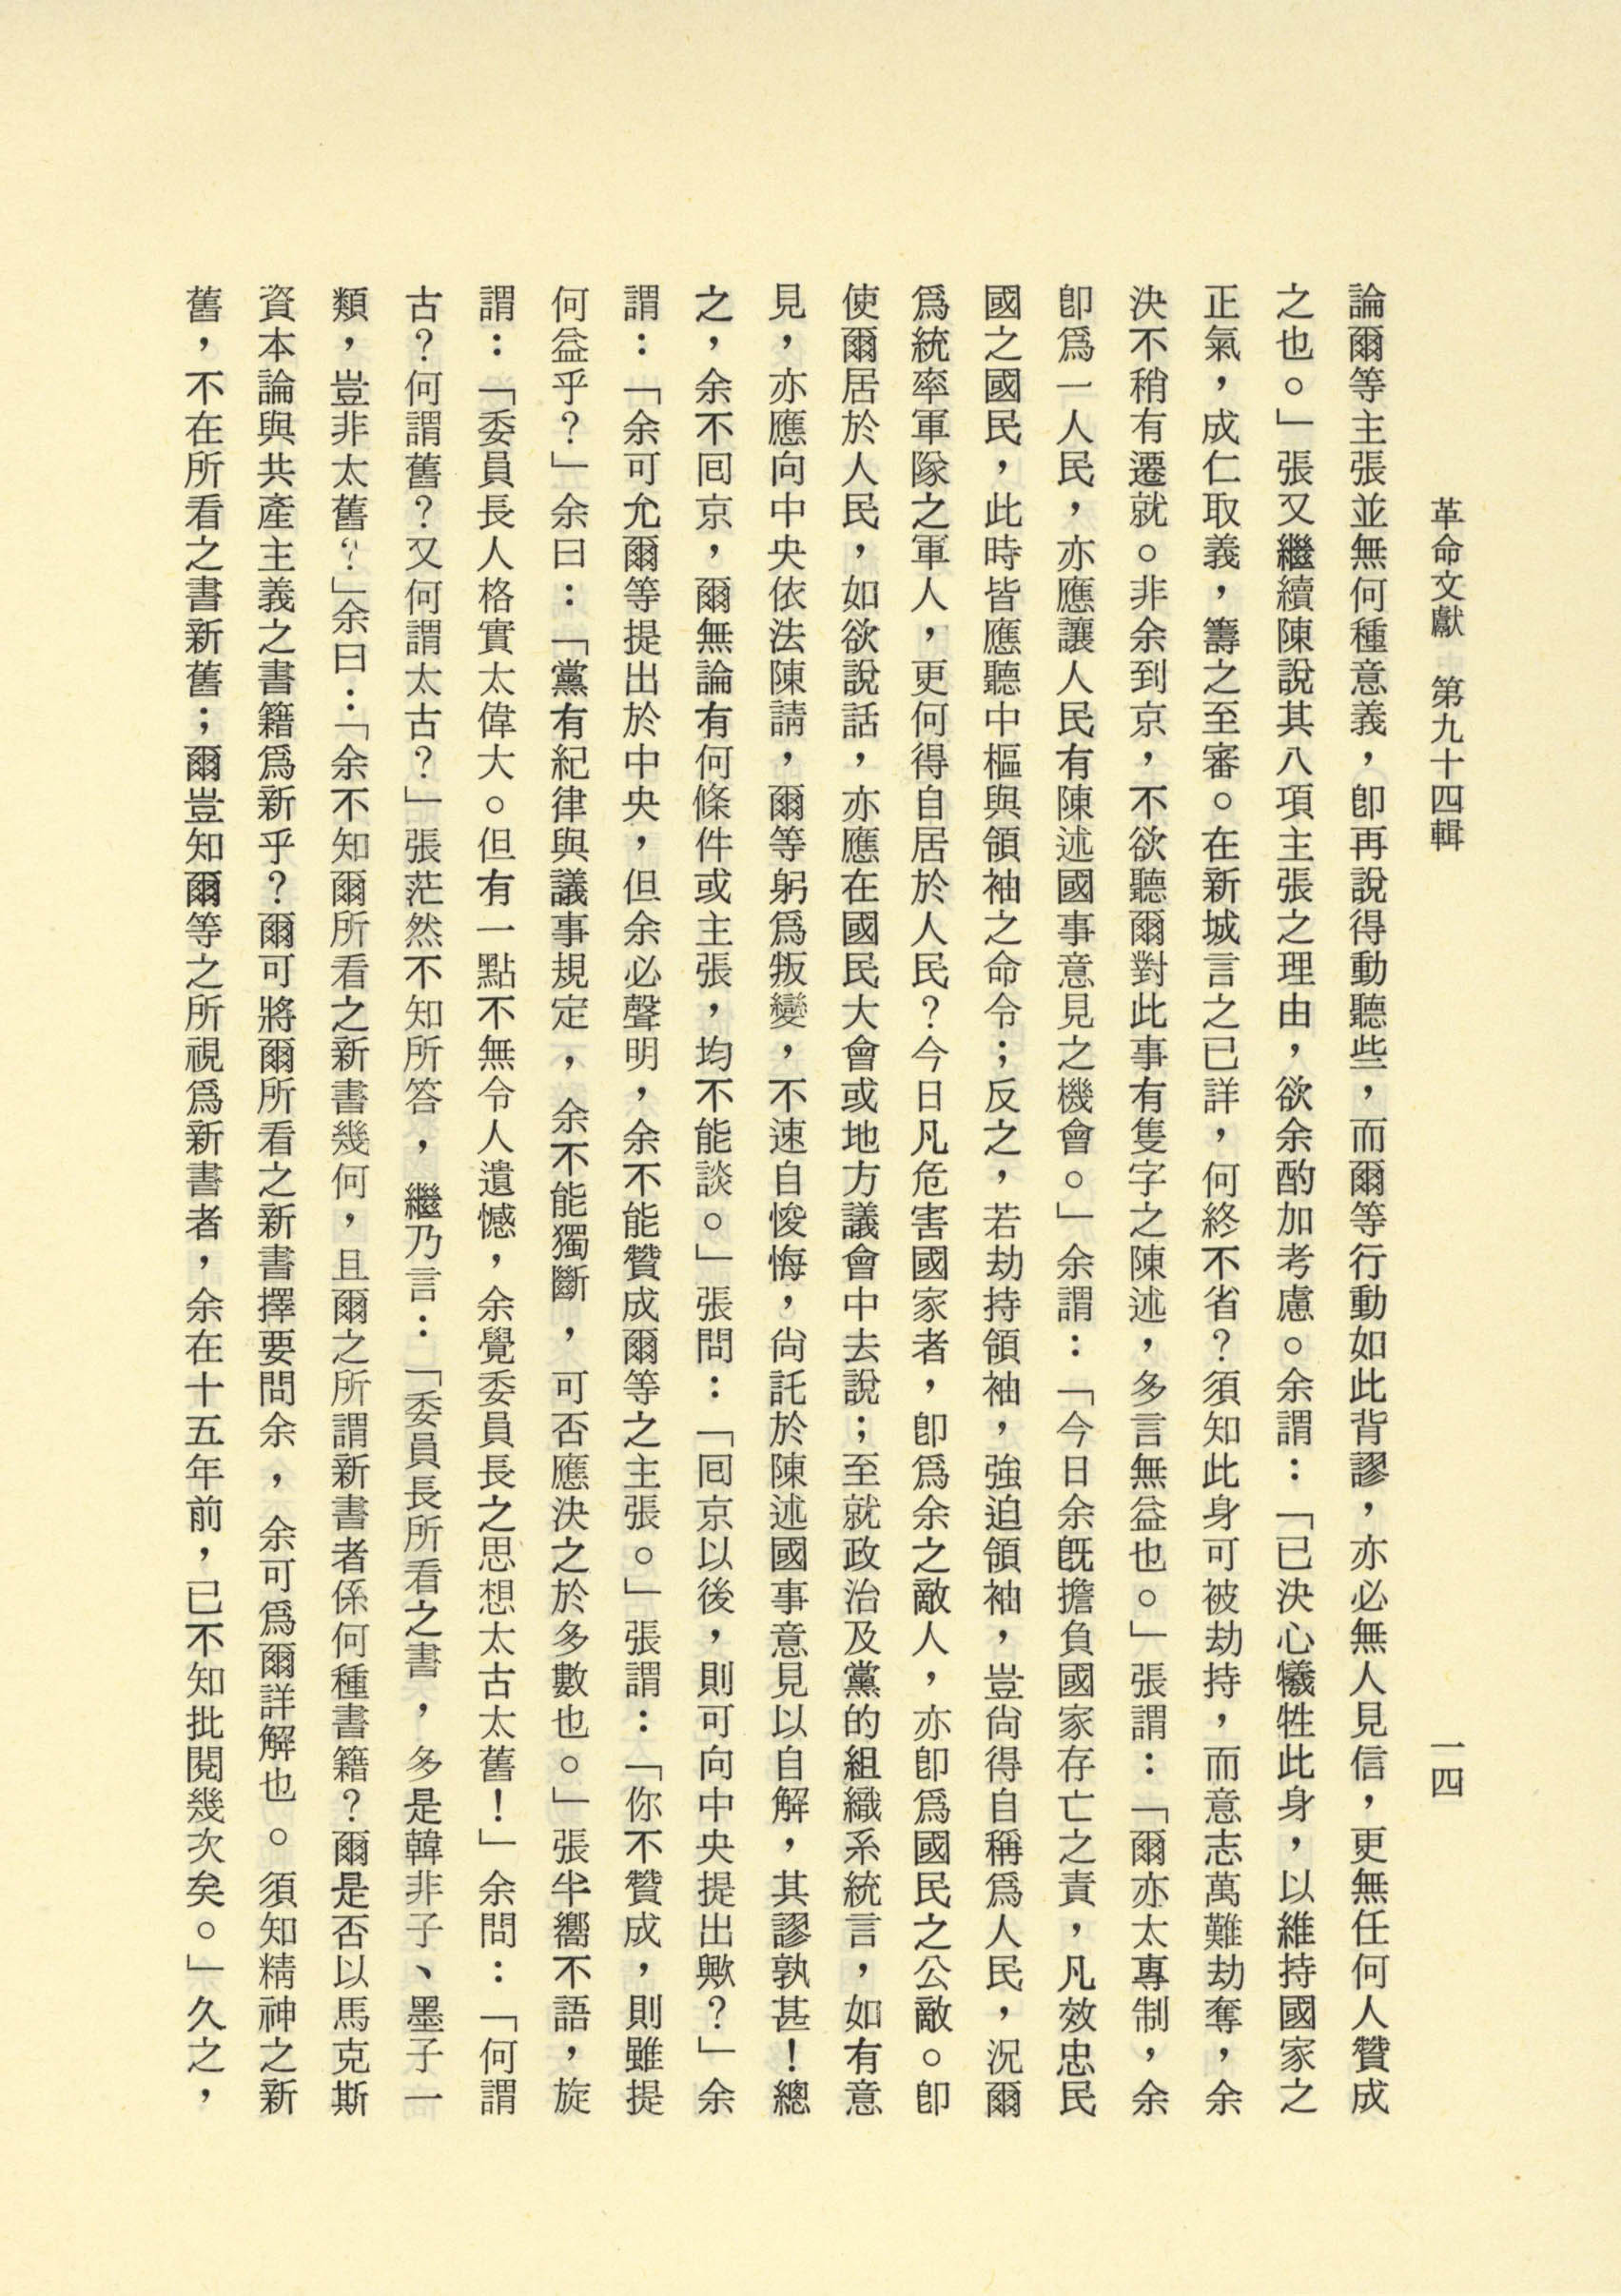 革命文獻 第九十四輯
一四
論爾等主張並無何種意義，卽再說得動聽些，而爾等行動如此背謬，亦必無人見信，更無任何人贊成
之也。」張又繼續陳說其八項主張之理由，欲余酌加考慮。余謂：「已決心犧牲此身，以維持國家之
正氣，成仁取義，籌之至審。在新城言之已詳，何終不省？須知此身可被劫持，而意志萬難劫奪，余
決不稍有遷就。非余到京，不欲聽爾對此事有隻字之陳述，多言無益也。」張謂：「爾亦太專制，余
卽爲一人民，亦應讓人民有陳述國事意見之機會。」余謂：「今日余旣擔負國家存亡之責，凡效忠民
國之國民，此時皆應聽中樞與領袖之命令；反之，若劫持領袖，強迫領袖，豈尙得自稱爲人民，況爾
爲統率軍隊之軍人，更何得自居於人民？今日凡危害國家者，卽爲余之敵人，亦卽爲國民之公敵。卽
使爾居於人民，如欲說話，亦應在國民大會或地方議會中去說；至就政治及黨的組織系統言，如有意
見，亦應向中央依法陳請，爾等躬爲叛變，不速自悛悔，尙託於陳述國事意見以自解，其謬孰甚！總
之，余不囘京，爾無論有何條件或主張，均不能談。」張問：「囘京以後，則可向中央提出歟？」余
謂：「余可允爾等提出於中央，但余必聲明，余不能贊成爾等之主張。」張謂：「你不贊成，則雖提
何益乎？」余曰：「黨有紀律與議事規定，余不能獨斷，可否應決之於多數也。」張半嚮不語，旋
謂：「委員長人格實太偉大。但有一點不無令人遺憾，余覺委員長之思想太古太舊！」余問：「何謂
古？何謂舊？又何謂太古？」張茫然不知所答，繼乃言：「委員長所看之書，多是韓非子、墨子一
類，豈非太舊？」余曰：「余不知爾所看之新書幾何，且爾之所謂新書者係何種書籍？爾是否以馬克斯
資本論與共產主義之書籍爲新乎？爾可將爾所看之新書擇要問余，余可爲爾詳解也。須知精神之新
舊，不在所看之書新舊；爾豈知爾等之所視爲新書者，余在十五年前，已不知批閱幾次矣。」久之，